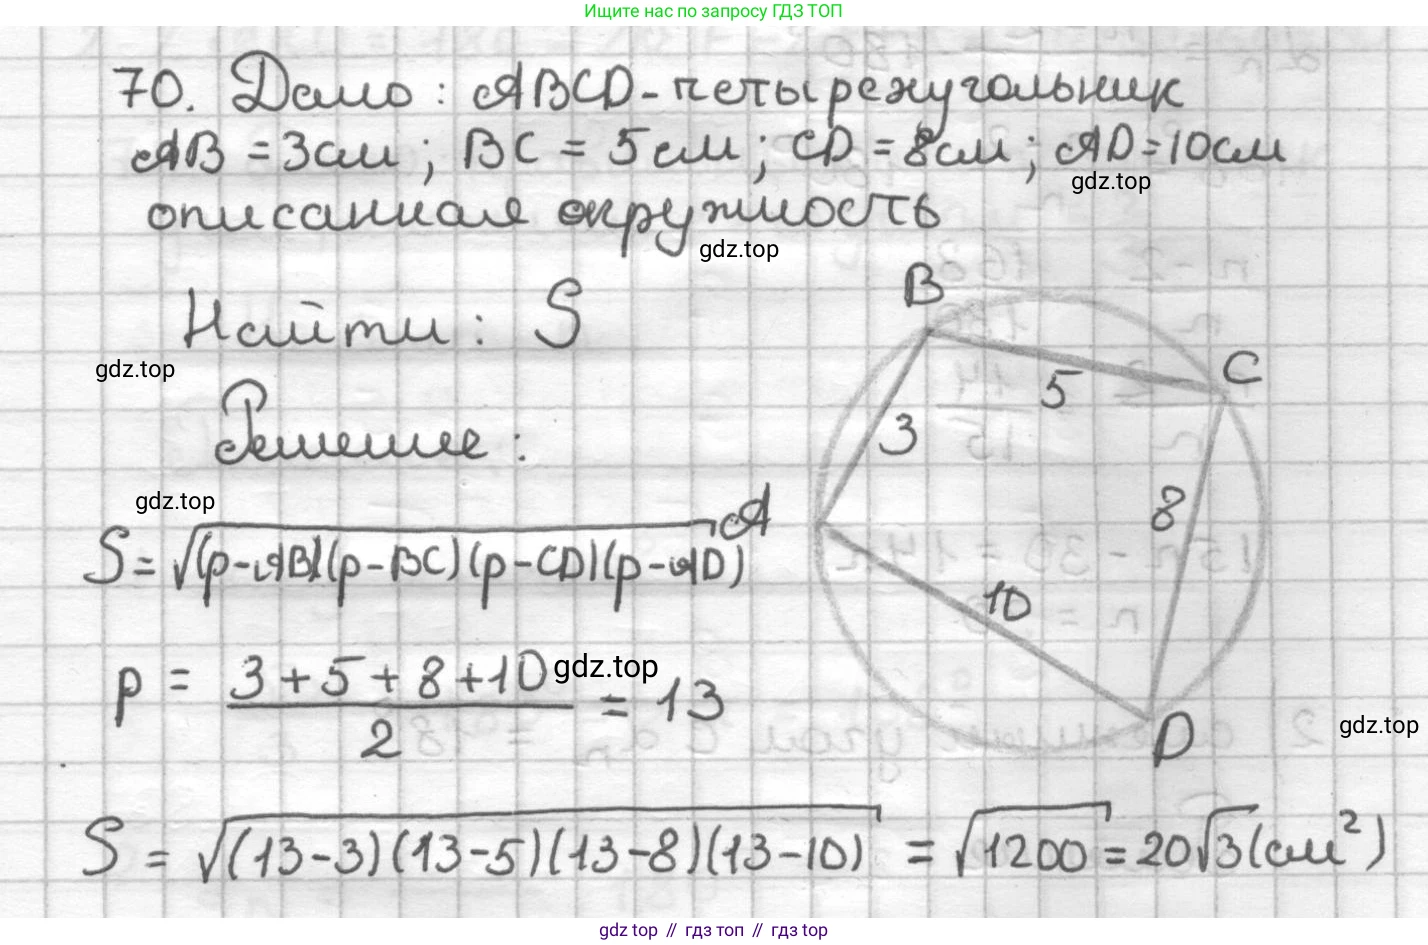 Ищите нас по запросу ГДЗ ТОП
70. Дано: ABCD - четырехугольник
AB = 3см; BC = 5см; CD = 8см; AD = 10см
gdz.top
описанная окружность
gdz.top
Найти: S
gdz.top
Решение:
gdz.top
S = √(p-AB)(p-BC)(p-CD)(p-AD)
p = (3+5+8+10)/2 = 13
gdz.top
S = √(13-3)(13-5)(13-8)(13-10) = √1200 = 20√3 (см²)
B
C
5
3
8
A
10
D
gdz.top
gdz top // гдз топ // гдз top